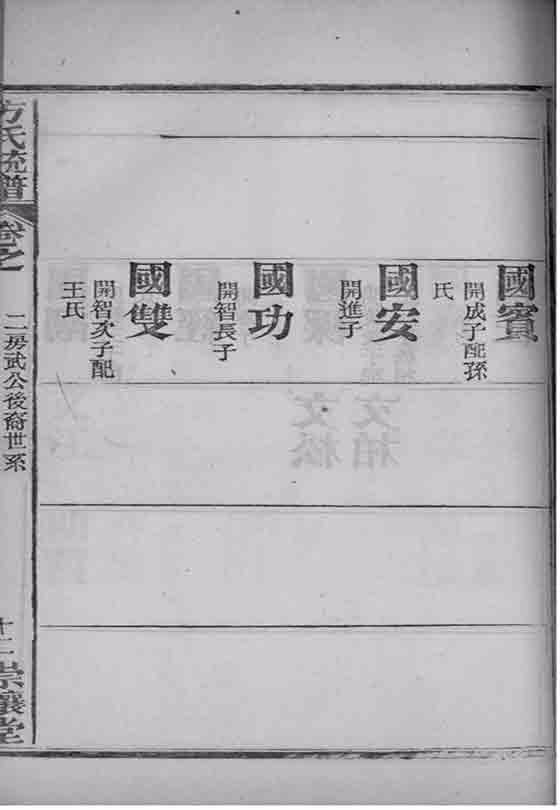 國賓
開成子配孫
氏
國安
開進子
國功
開智長子
國雙
開智次子配
王氏
方氏統譜
卷之
二房武公後裔世系
十二
堂